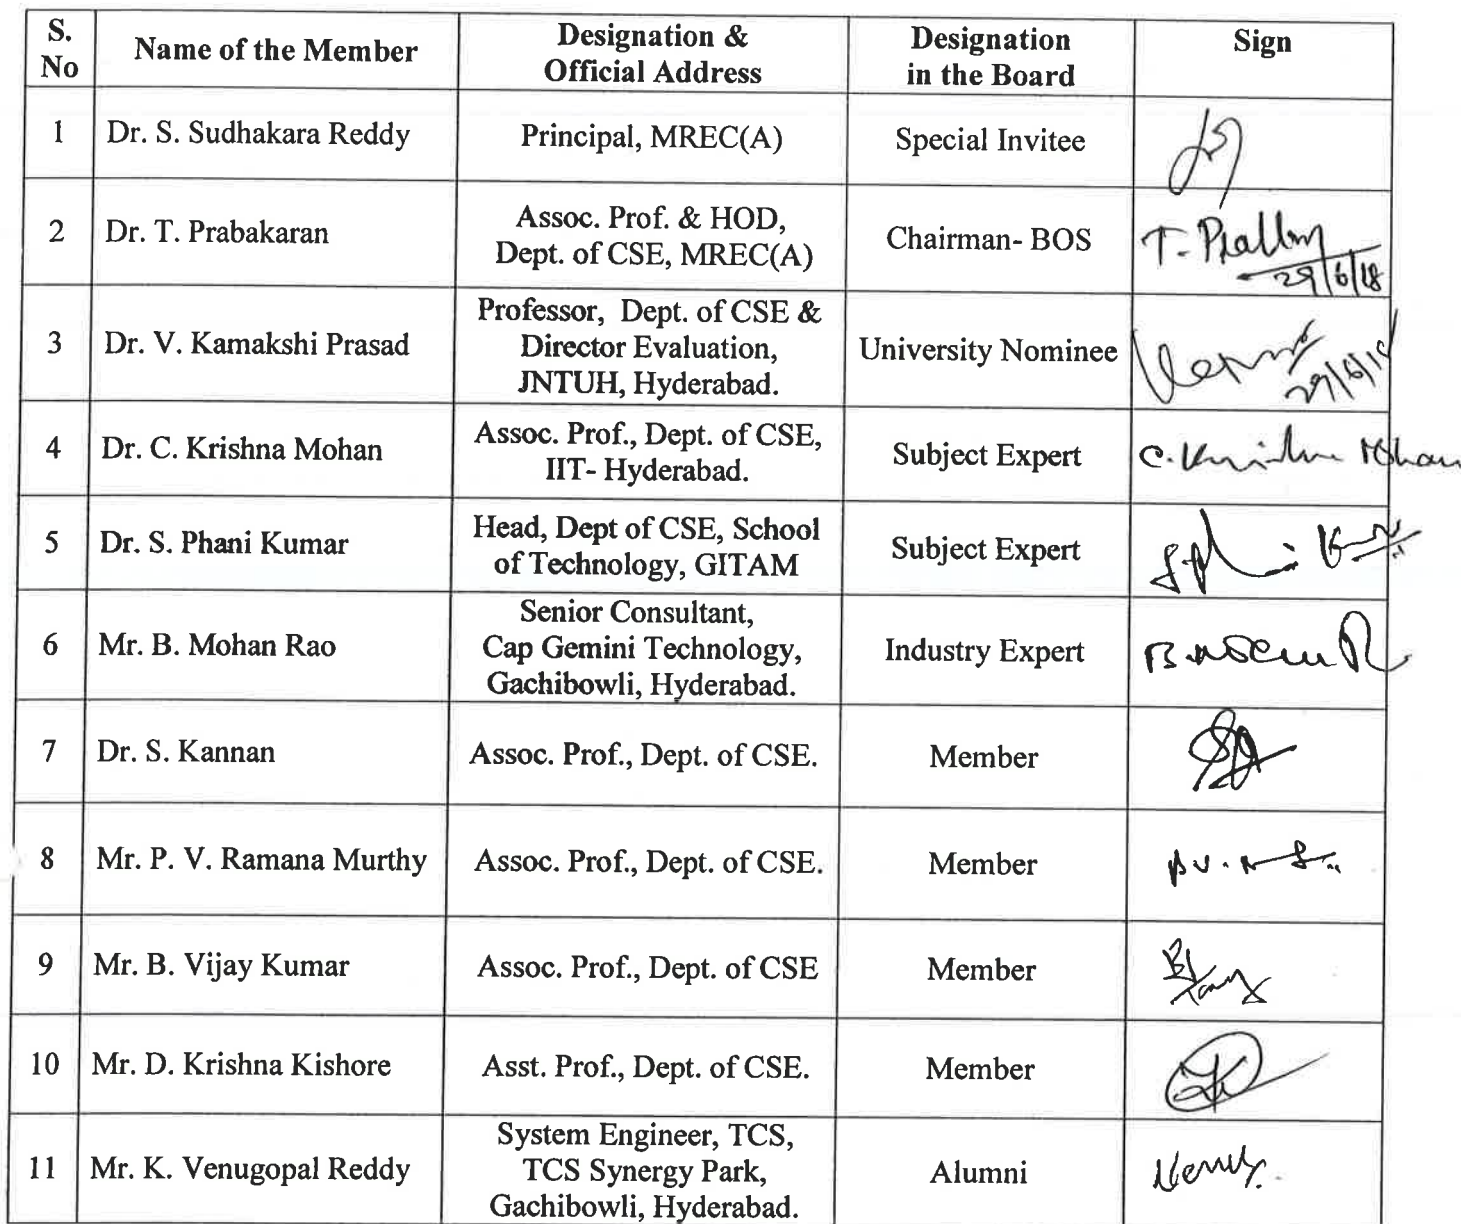 S. No
Name of the Member
Designation &
Official Address
Designation
in the Board
Sign
1
Dr. S. Sudhakara Reddy
Principal, MREC(A)
Special Invitee
2
Dr. T. Prabakaran
Assoc. Prof. & HOD,
Dept. of CSE, MREC(A)
Chairman- BOS
29/6/18
3
Dr. V. Kamakshi Prasad
Professor, Dept. of CSE &
Director Evaluation,
JNTUH, Hyderabad.
University Nominee
4
Dr. C. Krishna Mohan
Assoc. Prof., Dept. of CSE,
IIT- Hyderabad.
Subject Expert
C. Krishna Mohan
5
Dr. S. Phani Kumar
Head, Dept of CSE, School
of Technology, GITAM
Subject Expert
6
Mr. B. Mohan Rao
Senior Consultant,
Cap Gemini Technology,
Gachibowli, Hyderabad.
Industry Expert
7
Dr. S. Kannan
Assoc. Prof., Dept. of CSE.
Member
8
Mr. P. V. Ramana Murthy
Assoc. Prof., Dept. of CSE.
Member
9
Mr. B. Vijay Kumar
Assoc. Prof., Dept. of CSE
Member
10
Mr. D. Krishna Kishore
Asst. Prof., Dept. of CSE.
Member
11
Mr. K. Venugopal Reddy
System Engineer, TCS,
TCS Synergy Park,
Gachibowli, Hyderabad.
Alumni